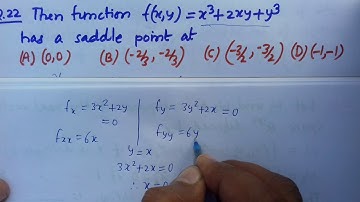 Q.22 Then function f(x,y) = x³+2xy+y³
has a saddle point at
(A) (0,0) (B) (-2/3, -2/3) (C) (-3/2, -3/2) (D) (-1,-1)
fx = 3x²+2y
= 0
fxx = 6x
fy = 3y²+2x = 0
fyy = 6y
y = x
3x²+2x = 0
∴ x =